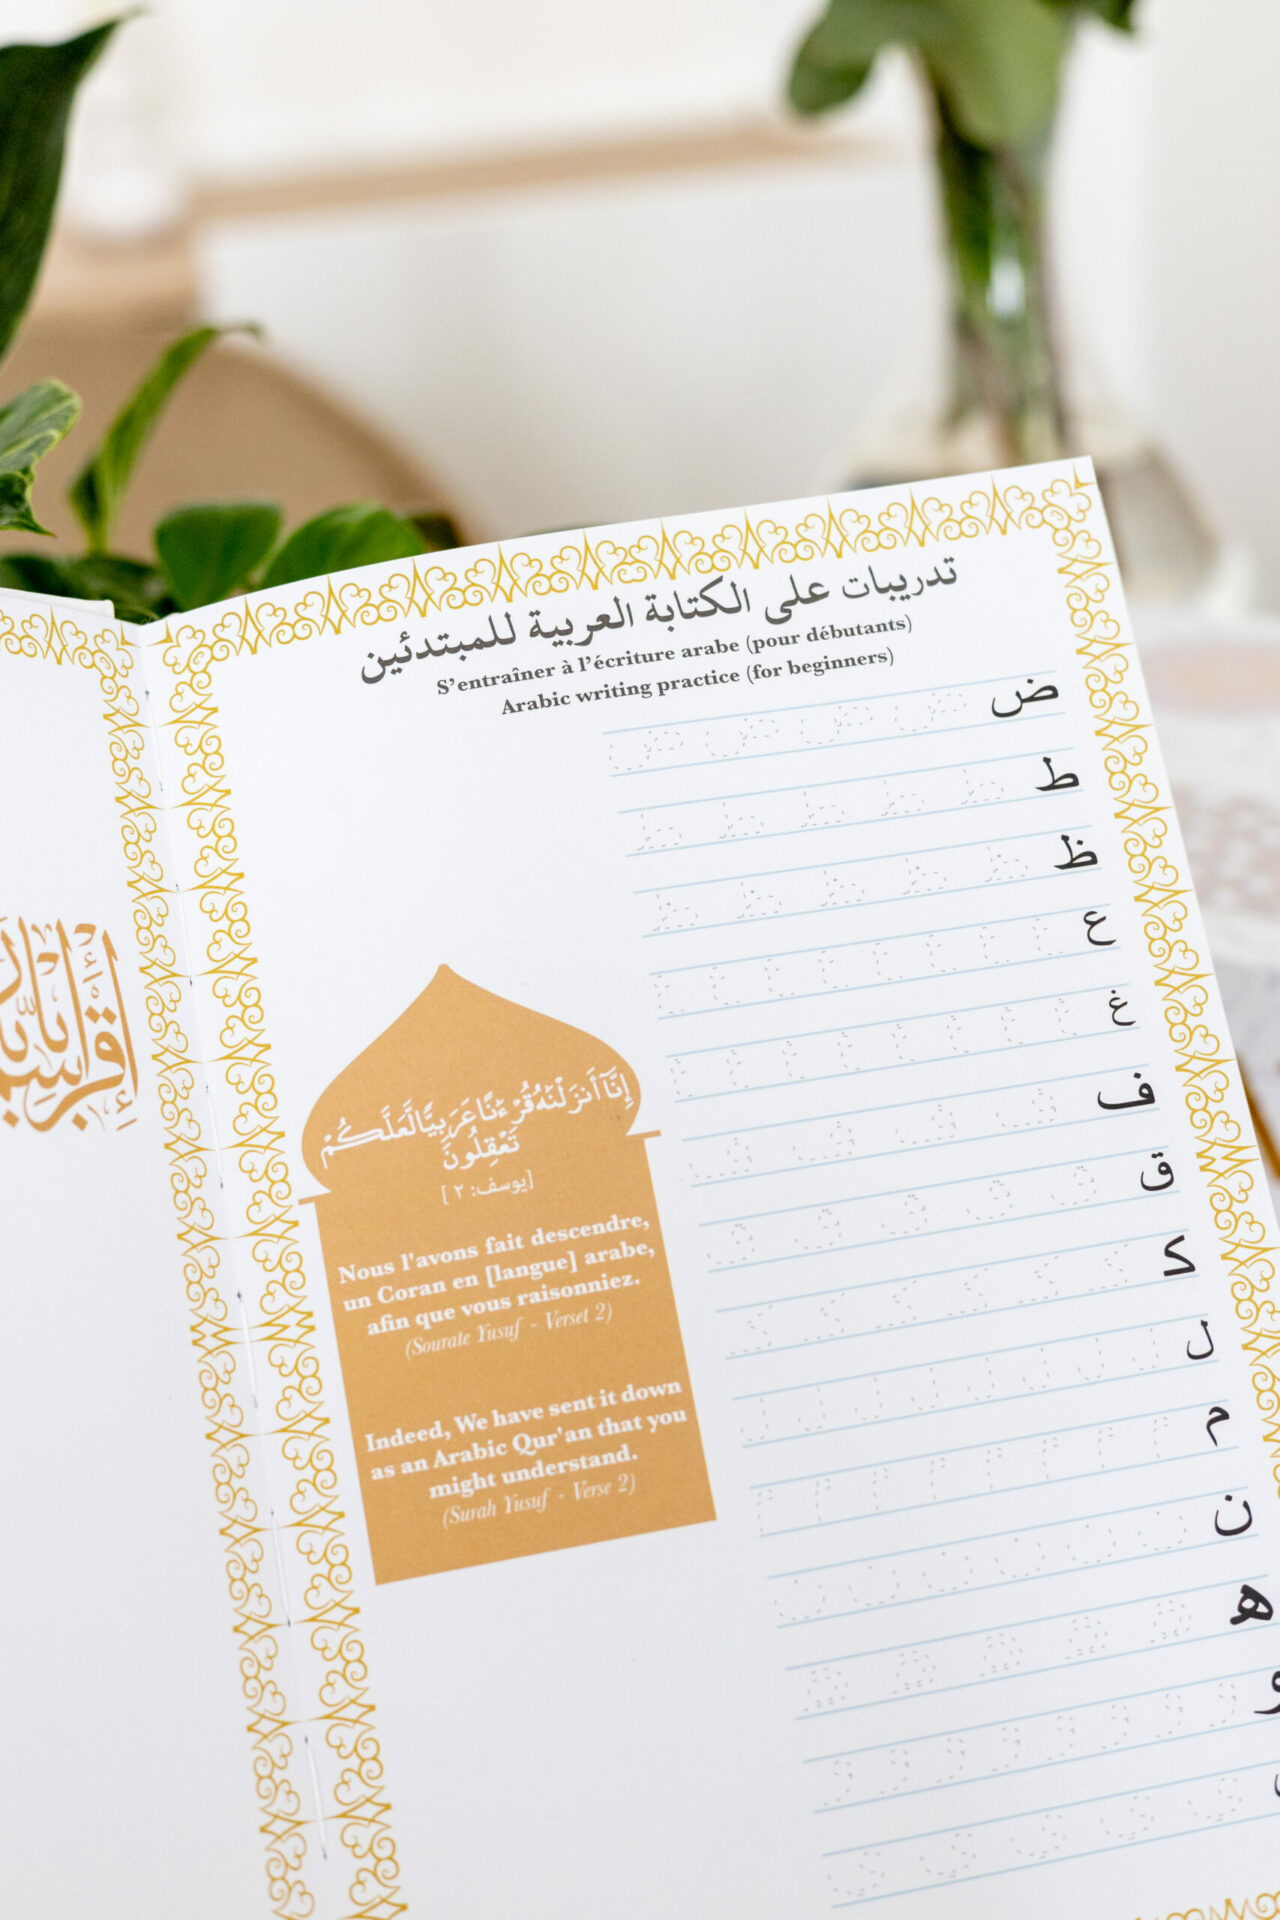 تدريبات على الكتابة العربية للمبتدئين
S'entraîner à l'écriture arabe (pour débutants)
Arabic writing practice (for beginners)
ض
ط
ظ
ع
غ
ف
ق
ک
ل
م
ن
ه
و
إِنَّآ أَنزَلْنَٰهُ قُرْءَٰنًا عَرَبِيًّا لَّعَلَّكُمْ
تَعْقِلُونَ
[يوسف: ٢ ]
Nous l'avons fait descendre,
un Coran en [langue] arabe,
afin que vous raisonniez.
(Sourate Yusuf - Verset 2)
Indeed, We have sent it down
as an Arabic Qur'an that you
might understand.
(Surah Yusuf - Verse 2)